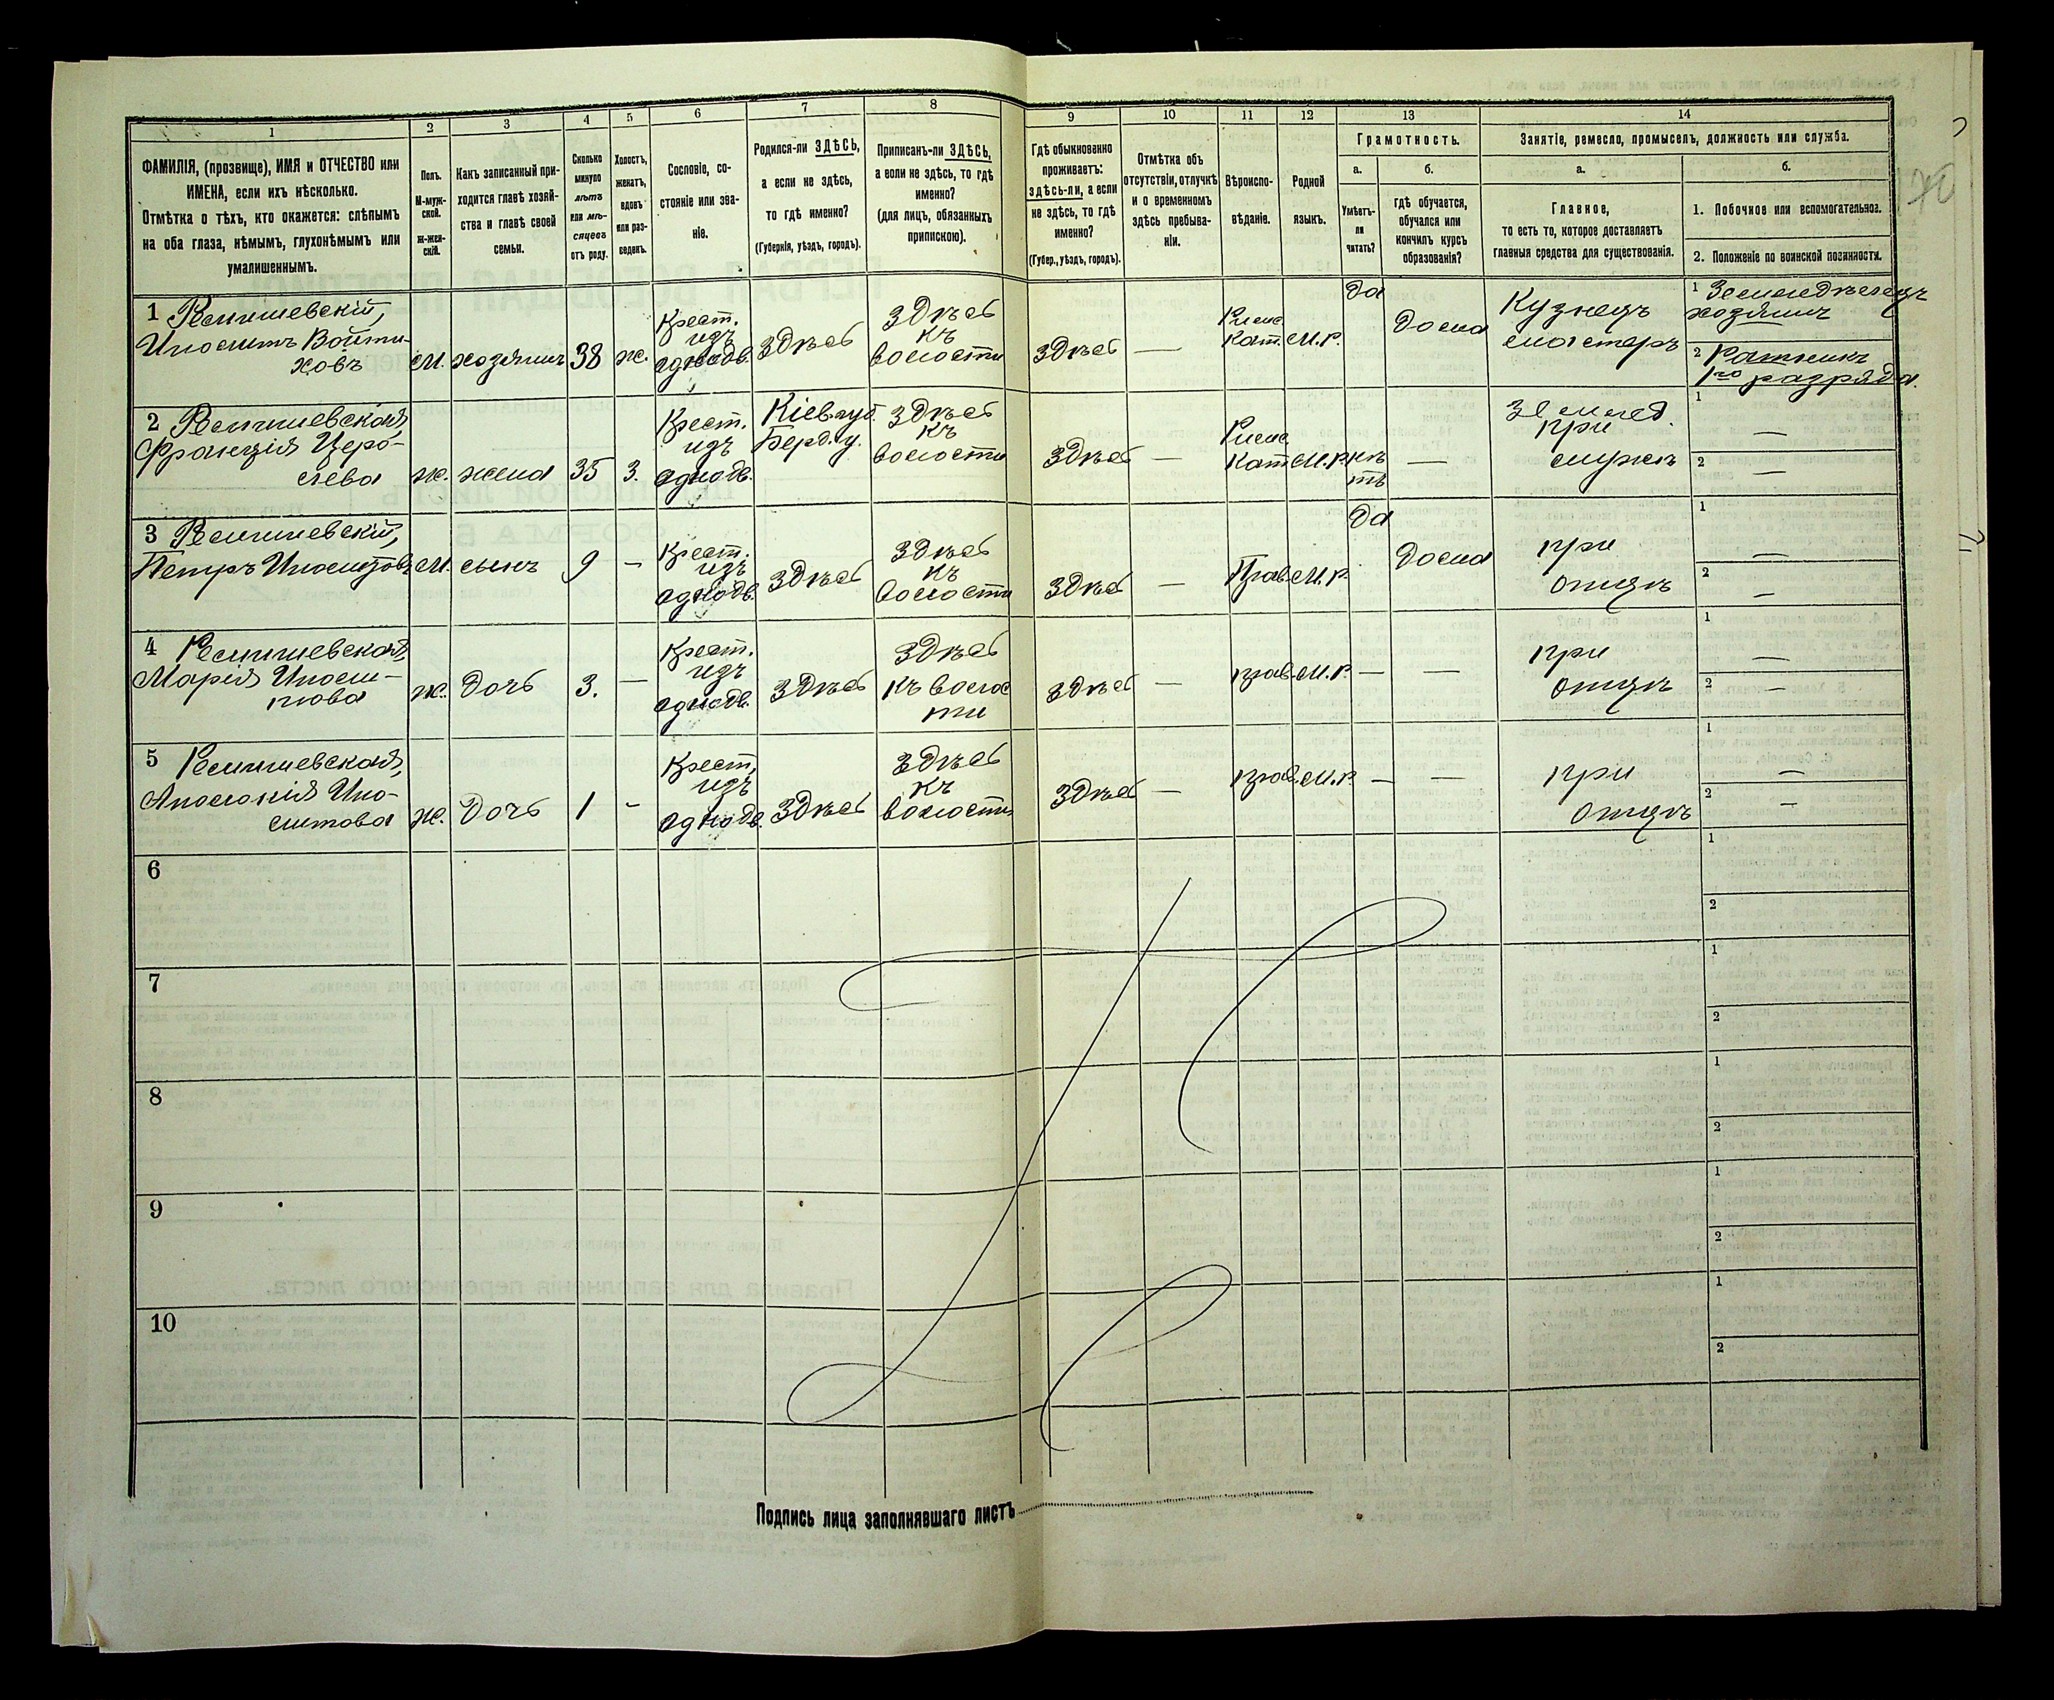 1 2 3 4 5 6 7 8 9 10 11 12 13 14
ФАМИЛІЯ, (прозвище), ИМЯ и ОТЧЕСТВО или
ИМЕНА, если ихъ нѣсколько.
Отмѣтка о тѣхъ, кто окажется: слѣпымъ
на оба глаза, нѣмымъ, глухонѣмымъ или
умалишеннымъ.
Полъ.
М-муж-
ской.
ж-жен-
скій.
Какъ записанный при-
ходится главѣ хозяй-
ства и главѣ своей
семьи.
Сколько
минуло
лѣтъ
или мѣ-
сяцевъ
отъ роду.
Холостъ,
женатъ,
вдовъ
или раз-
веденъ.
Сословіе, со-
стояніе или зва-
ніе.
Родился-ли ЗДѢСЬ,
а если не здѣсь,
то гдѣ именно?
(Губернія, уѣздъ, городъ).
Приписанъ-ли ЗДѢСЬ,
а если не здѣсь, то гдѣ
именно?
(для лицъ, обязанныхъ
припискою).
Гдѣ обыкновенно
проживаетъ:
здѣсь-ли, а если
не здѣсь, то гдѣ
именно?
(Губер., уѣздъ, городъ).
Отмѣтка объ
отсутствіи, отлучкѣ
и о временномъ
здѣсь пребыва-
ніи.
Вѣроиспо-
вѣданіе.
Родной
языкъ.
Грамотность.
а.
Умѣетъ-
ли
читать?
б.
гдѣ обучается,
обучался или
кончилъ курсъ
образованія?
Занятіе, ремесло, промыселъ, должность или служба.
а.
Главное,
то есть то, которое доставляетъ
главныя средства для существованія.
б.
1. Побочное или вспомогательное.
2. Положеніе по воинской повинности.
70
1
Войти-
ховъ
м. хозяинъ 38 ж.
Крест.
изъ
однодв.
здѣсь
здѣсь
къ
волости
здѣсь —
Римс.
Кат. м.р.
да
дома
Кузнецъ
мастеръ
1 Земледѣлецъ
хозяинъ
2 Ратникъ
1го разряда.
2
ж. жена 35 з.
Крест.
изъ
однодв.
Кіев. губ.
Берд. у.
здѣсь
къ
волости
здѣсь —
Римс.
Кат. м.р. нѣ
тъ
—
землед.
при
мужѣ
1 —
2 —
3
Петръ
м. сынъ 9 —
Крест.
изъ
однодв.
здѣсь
здѣсь
къ
волости
здѣсь —
Прав. м.р.
да
дома
при
отцѣ
1 —
2 —
4
Марія
ж. дочь 3. —
Крест.
изъ
однодв.
здѣсь
здѣсь
къ волос
ти
здѣсь —
прав. м.р. — —
при
отцѣ
1 —
2 —
5
ж. дочь 1 -
Крест.
изъ
однодв.
здѣсь
здѣсь
къ
волости
здѣсь —
прав. м.р. — —
при
отцѣ
1 —
2 —
6
1
2
7
1
2
8
1
2
9
1
2
10
1
2
Подпись лица заполнявшаго листъ